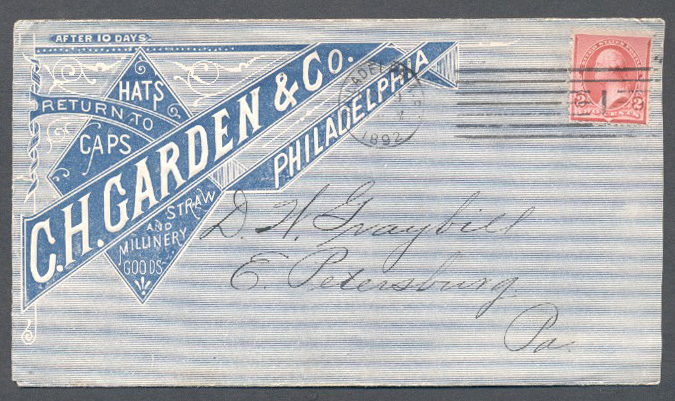 AFTER 10 DAYS
RETURN TO
HATS
CAPS
C.H. GARDEN & Co.
PHILADELPHIA
STRAW
AND
MILLINERY
GOODS
1892
2 2
D. H. Graybill
E. Petersburg
Pa.